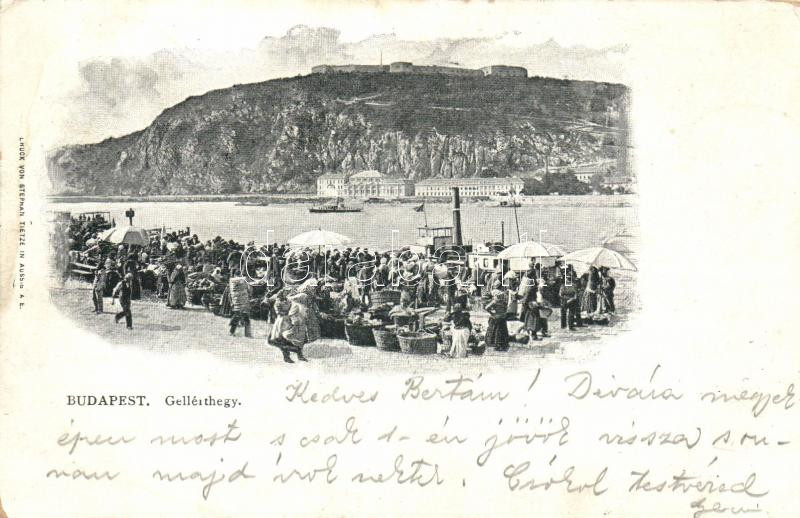 DRUCK VON STEPHAN TIETZE IN AUSSIG A E.
darabanth.com
BUDAPEST. Gellérthegy.
Kedves Bertám! Dévára megyek
épen most s csak 1-én jövök vissza s on-
nan majd írok nektek. Csókol testvéred